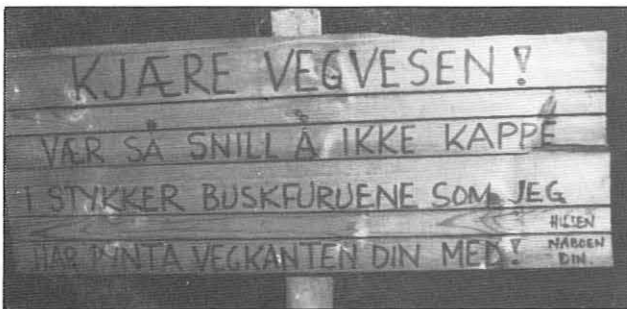 KJÆRE VEGVESEN!
VÆR SÅ SNILL Å IKKE KAPPE
I STYKKER BUSKFURUENE SOM JEG
HAR PYNTA VEGKANTEN DIN MED!
HILSEN
NABOEN
DIN.